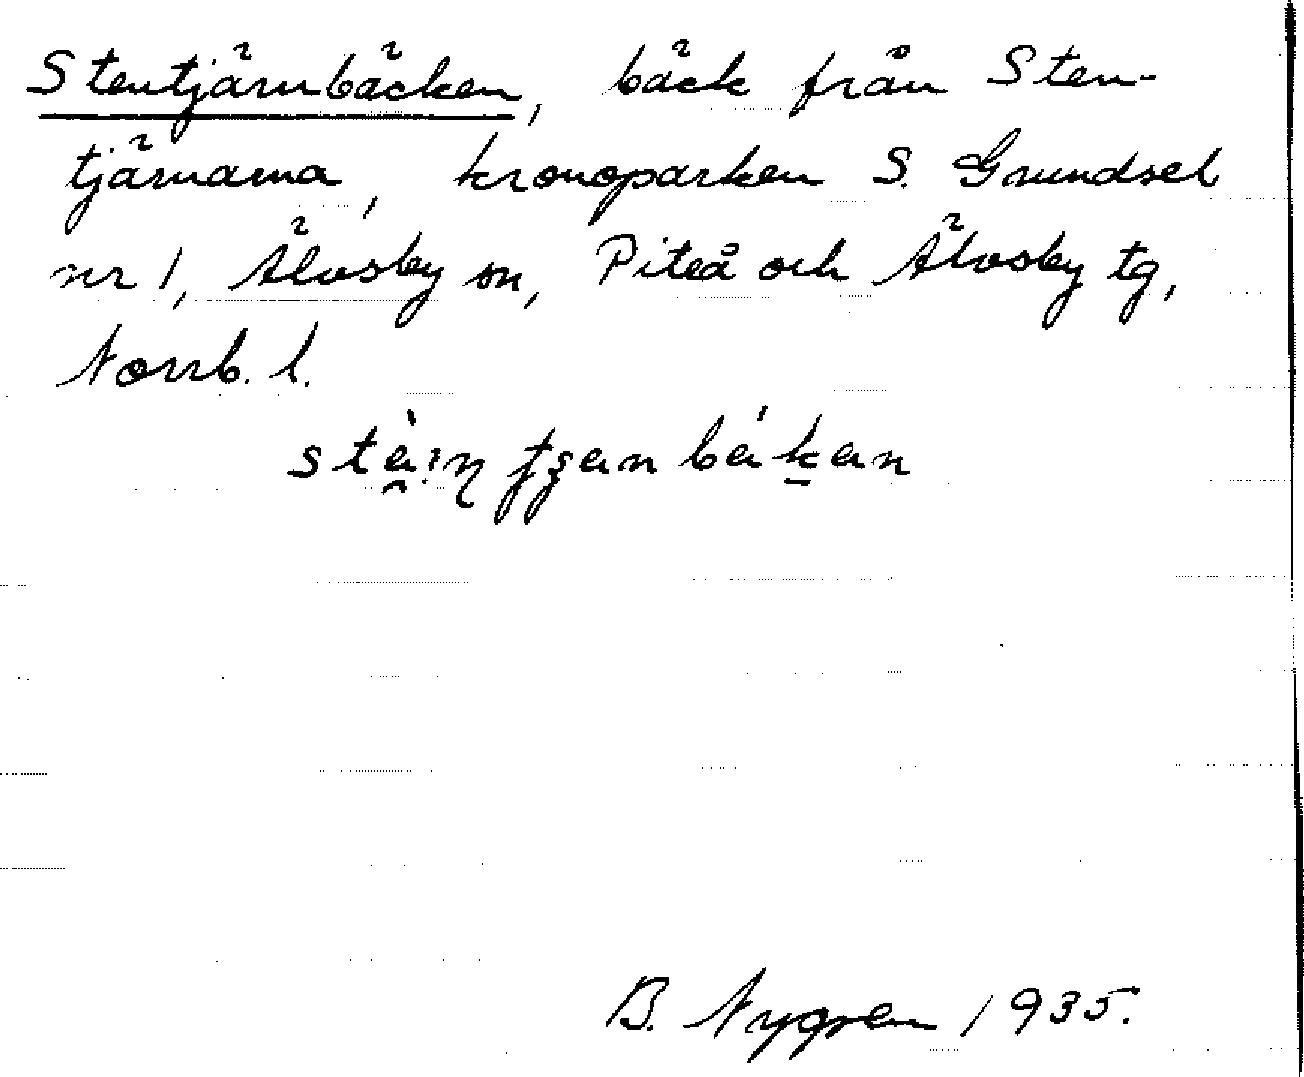 Stentjärnbäcken, bäck från Sten-
tjärnarna, kronoparken S. Grundsel
nr 1, Älvsby sn, Piteå och Älvsby tg,
Norrb. l.
B. Nygren 1935.